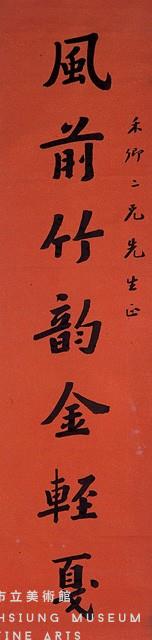 禾卿二兄先生正
風前竹韵金輕戛
市立美術館
HSIUNG MUSEUM
FINE ARTS